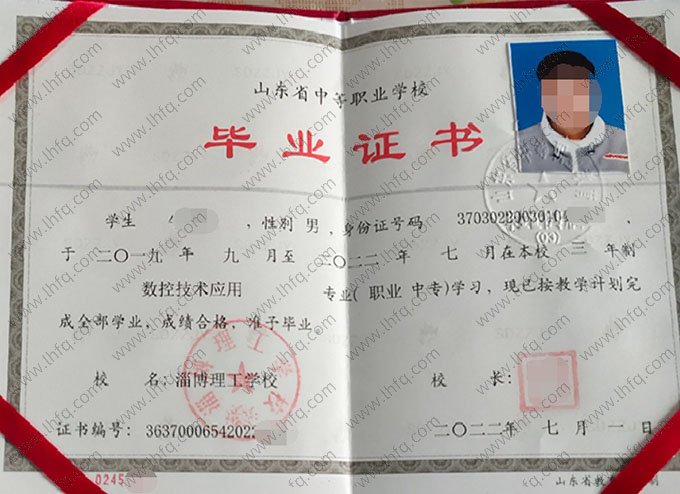 山东省中等职业学校
毕业证书
学生 ，性别 男，身份证号码 37030220030104 ，
于 二〇一九 年 九 月至 二〇二二 年 七 月在本校 三 年制
数控技术应用 专业( 职业 中专)学习，现已按教学计划完
成全部学业，成绩合格，准予毕业。
校 名：淄博理工学校 校 长：
证书编号：36370006542022 二〇二二 年 七 月 一 日
0245 山东省教 制
淄博理工学校
www.lhfq.com